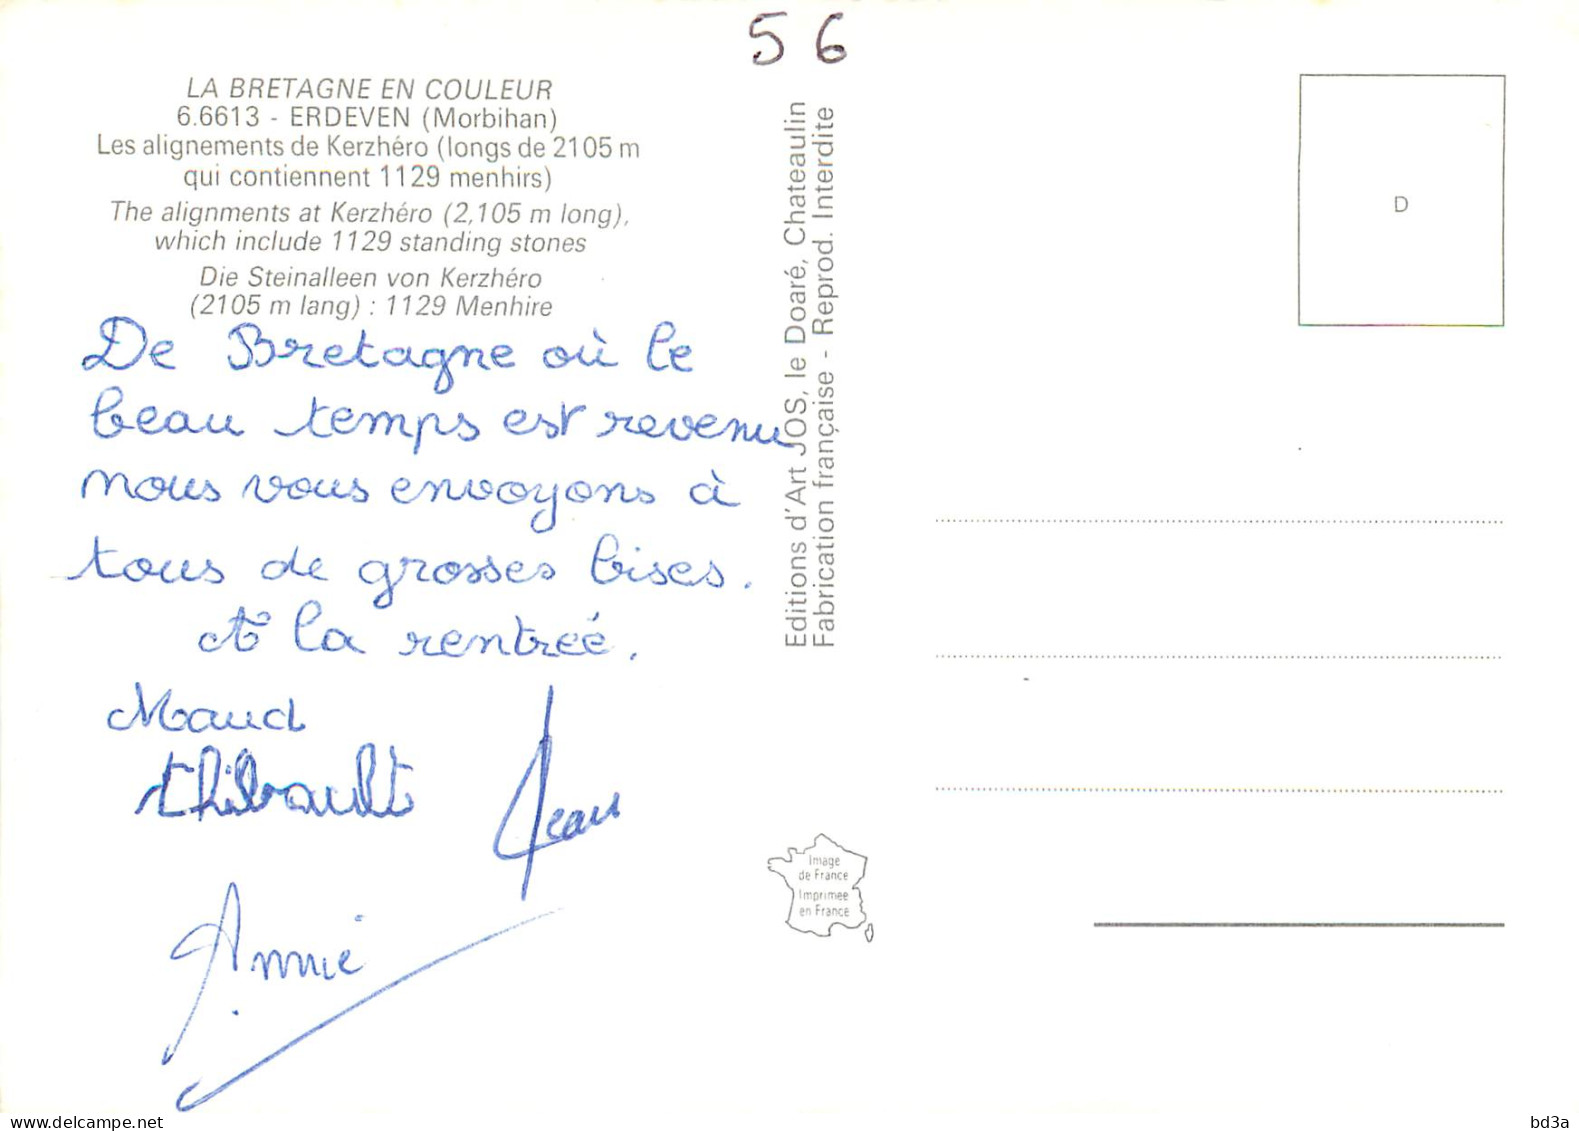 56
LA BRETAGNE EN COULEUR
6.6613 - ERDEVEN (Morbihan)
Les alignements de Kerzhéro (longs de 2105 m
qui contiennent 1129 menhirs)
The alignments at Kerzhéro (2,105 m long),
which include 1129 standing stones
Die Steinalleen von Kerzhéro
(2105 m lang) : 1129 Menhire
De Bretagne où le
beau temps est revenu
nous vous envoyons à
tous de grosses bises.
A la rentrée.
Maud
Thibault
Jean
Annie
Editions d'Art JOS, le Doaré, Chateaulin
Fabrication française - Reprod. Interdite
D
Image
de France
Imprimee
en France
delcampe.net
bd3a